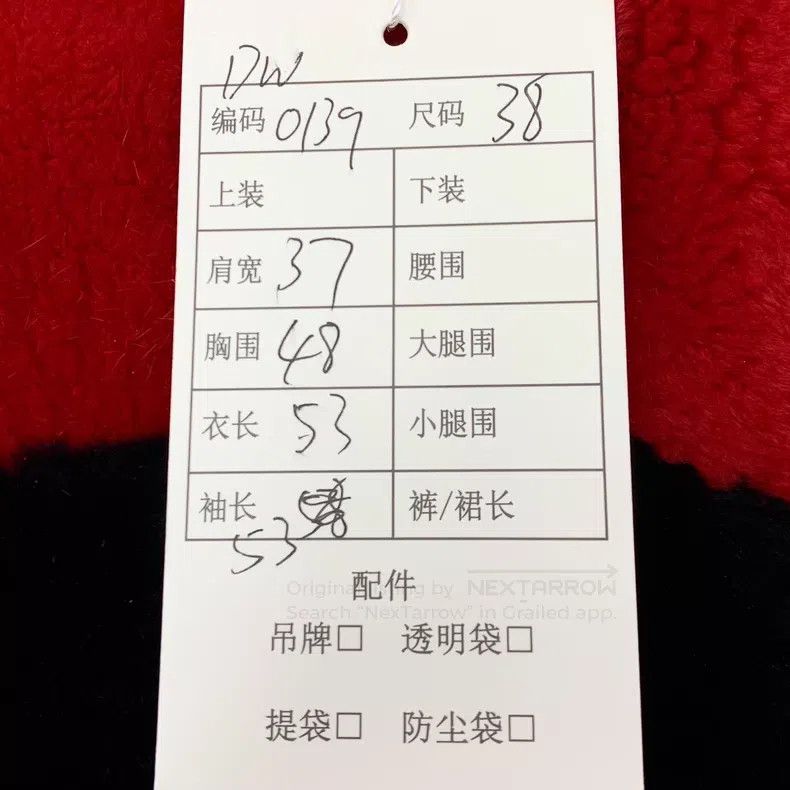 DW
编码 0139 尺码 38
上装 下装
肩宽 37 腰围
胸围 48 大腿围
衣长 53 小腿围
袖长 裤/裙长
53
配件
Original listing by NEXTARROW
Search "NexTarrow" in Grailed app.
吊牌□ 透明袋□
提袋□ 防尘袋□